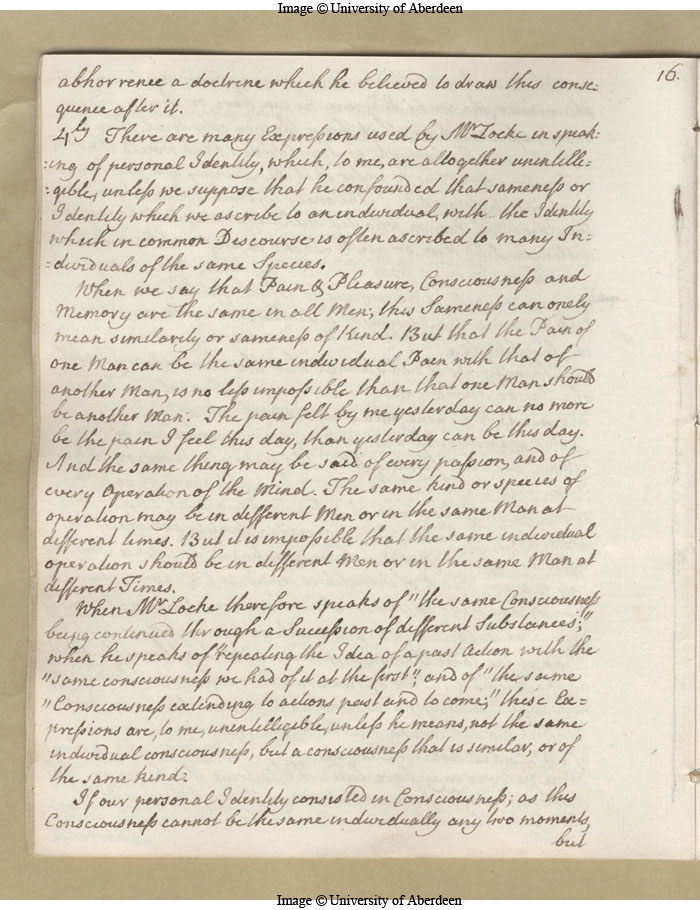 Image © University of Aberdeen
16.
abhorrence a doctrine which he believed to draw this conse:
quence after it.
4ly There are many Expressions used by Mr Locke in speak:
:ing of personal Identity, which, to me, are altogether unintelli=
:gible, unless we suppose that he confounded that sameness or
Identity which we ascribe to an individual, with the Identity
which in common Discourse is often ascribed to many In=
=dividuals of the same Species.
When we say that Pain & Pleasure, Consciousness and
Memory are the same in all Men, this Sameness can onely
mean similarity or sameness of Kind. But that the Pain of
one Man can be the same individual Pain with that of
another Man, is no less impossible than that one Man should
be another Man. The pain felt by me yesterday can no more
be the pain I feel this day, than yesterday can be this day.
And the same thing may be said of every passion, and of
every Operation of the Mind. The same kind or species of
operation may be in different Men or in the same Man at
different times. But it is impossible that the same individual
operation should be in different Men or in the same Man at
different Times.
When Mr Locke therefore speaks of "the same Consciousness
being continued through a Sucession of different Substances;"
when he speaks of "repeating the Idea of a past Action with the
"same consciousness we had of it at the first"; and of "the same
"Consciousness extending to actions past and to come;" these Ex=
pressions are, to me, unintelligible, unless he means, not the same
individual consciousness, but a consciousness that is similar, or of
the same kind.
If our personal Identity consisted in Consciousness; as this
Consciousness cannot be the same individually any two moments,
but
Image © University of Aberdeen